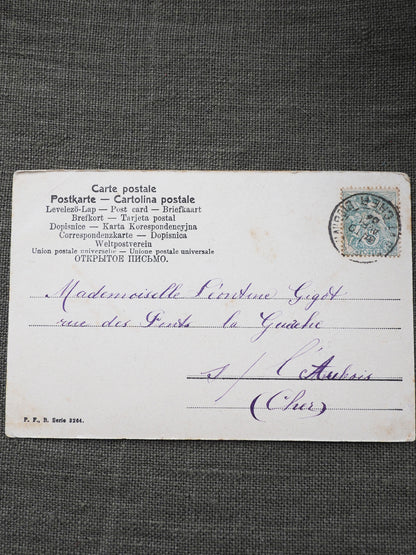 Carte postale
Postkarte — Cartolina postale
Levelezö-Lap — Post card — Briefkaart
Brefkort — Tarjeta postal
Dopisnice — Karta Korespondencyjna
Correspondenzkarte — Dopisnica
Weltpostverein
Union postale universelle — Unione postale universale
ОТКРЫТОЕ ПИСЬМО.
Mademoiselle Léontine Gigot
rue des Ponts la Guerche
s/ l'Aubois
(Cher)
P. F., B. Serie 3264.